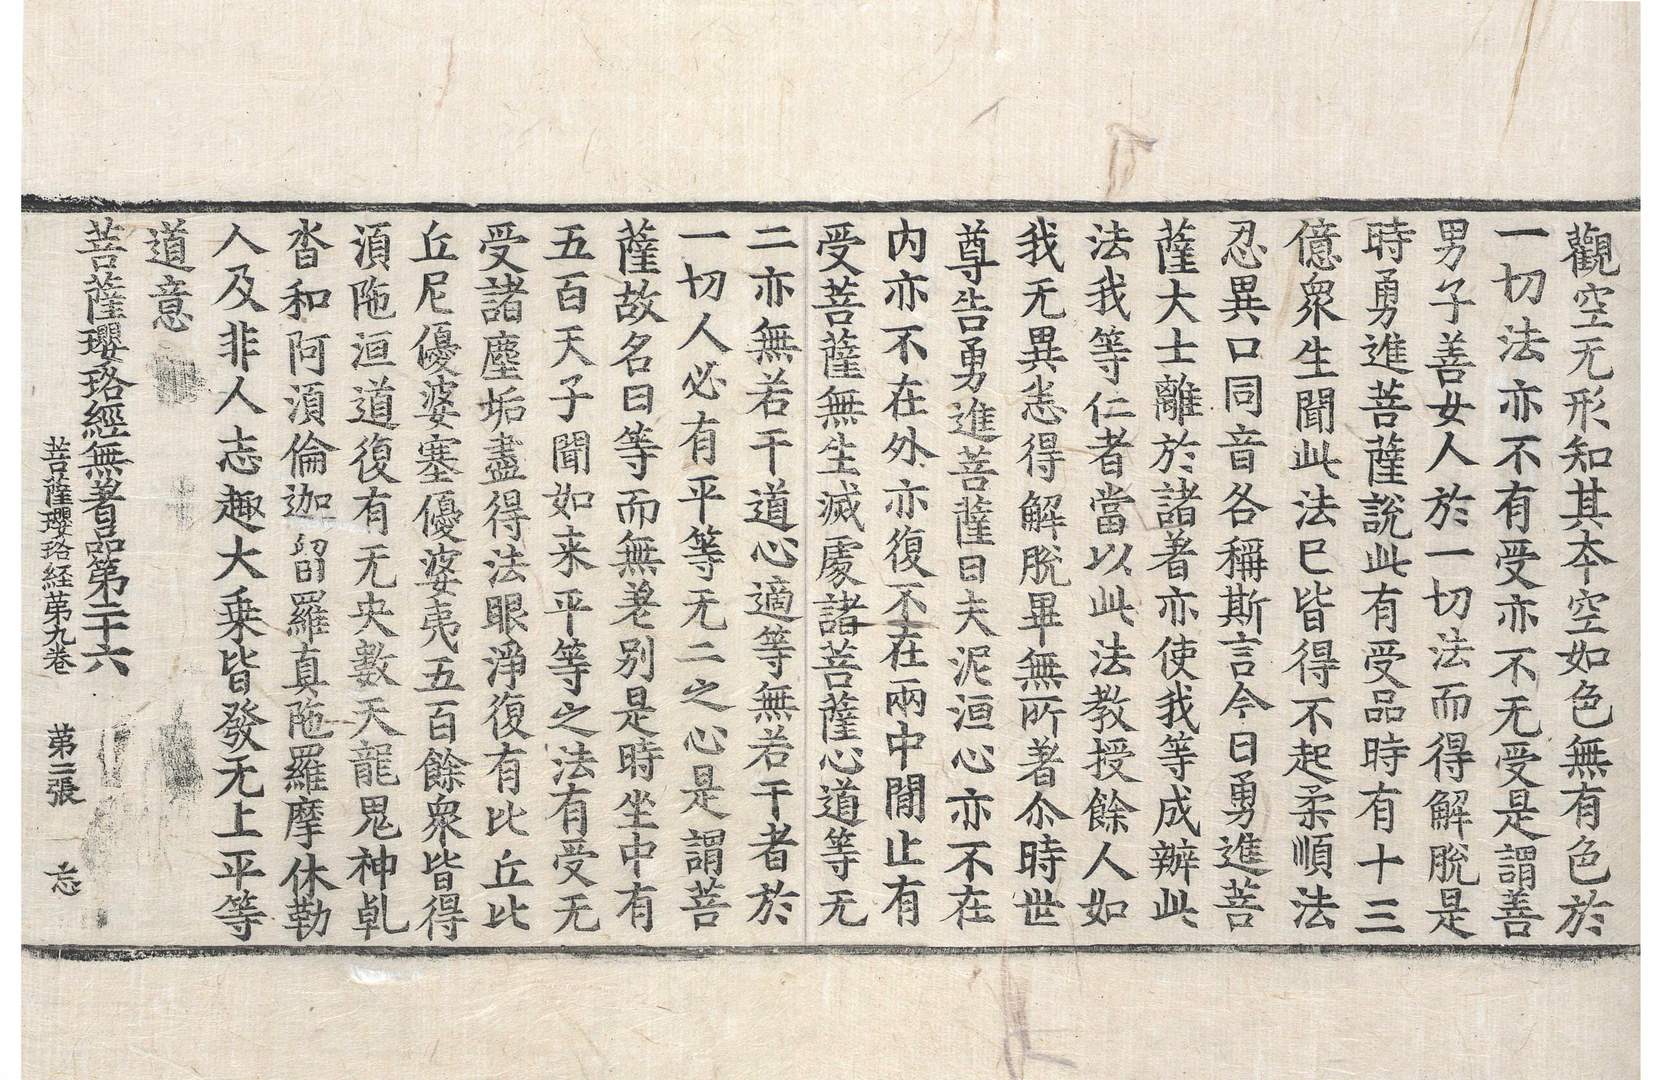 觀空无形知其本空如色無有色於
一切法亦不有受亦不无受是謂善
男子善女人於一切法而得解脫是
時勇進菩薩說此有受品時有十三
億衆生聞此法已皆得不起柔順法
忍異口同音各稱斯言今日勇進菩
薩大士離於諸著亦使我等成辦此
法我等仁者當以此法教授餘人如
我无異恙得解脫畢無所著尒時世
尊告勇進菩薩曰夫泥洹心亦不在
內亦不在外亦復不在兩中閒止有
受菩薩無生滅處諸菩薩心道等无
二亦無若干道心適等無若干者於
一切人必有平等无二之心是謂菩
薩故名曰等而無差別是時坐中有
五百天子聞如来平等之法有受无
受諸塵垢盡得法眼淨復有比丘比
丘尼優婆塞優婆夷五百餘衆皆得
須陁洹道復有无央數天龍鬼神乹
沓和阿須倫迦留羅真陁羅摩休勒
人及非人志趣大乗皆發无上平等
道意
菩薩瓔珞經無著品第二十六
菩薩瓔珞経苐九卷 苐二張 忘